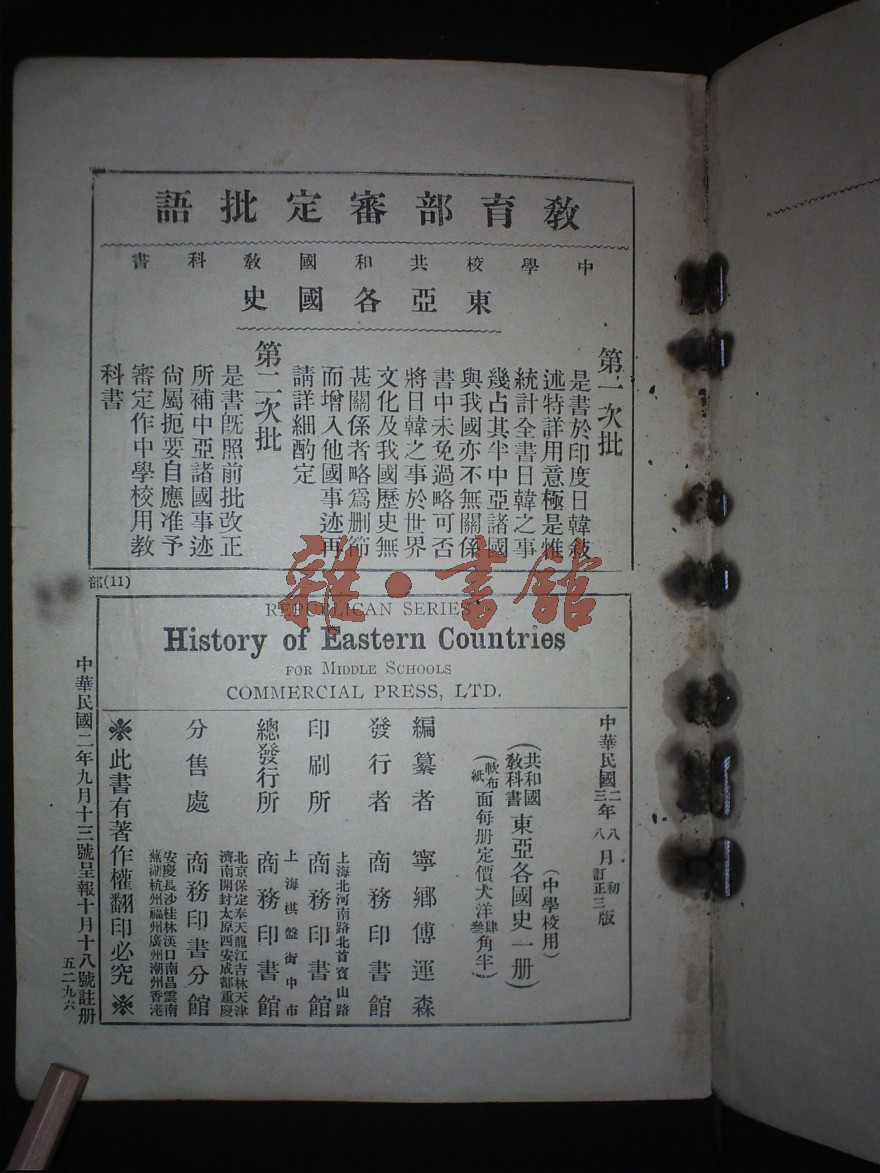 教育部審定批語
中學校共和國教科書
東亞各國史
第一次批
是書於印度日韓敍
述特詳用意極是惟
統計全書日韓之事
幾占其半中亞諸國
與我國亦不無關係
書中未免過略可否
將日韓之事於世界
文化及我國歷史無
甚關係者略爲刪節
而增入他國事迹再
請詳細酌定
第二次批
是書旣照前批改正
所補中亞諸國事迹
尙屬扼要自應准予
審定作中學校用教
科書
部(11)
雜·書館
REPUBLICAN SERIES
History of Eastern Countries
FOR MIDDLE SCHOOLS
COMMERCIAL PRESS, LTD.
中華民國二年八月初版
三年八月訂正三版
(中學校用)
(共和國教科書東亞各國史一册)
(軟布面每册定價大洋肆角半)
紙 叁
編纂者 寧鄉傅運森
發行者 商務印書館
上海北河南路北首寶山路
印刷所 商務印書館
上海棋盤街中市
總發行所 商務印書館
北京保定奉天龍江吉林天津
濟南開封太原西安成都重慶
分售處 商務印書分館
安慶長沙桂林漢口南昌雲南
蕪湖杭州福州廣州潮州香港
※此書有著作權翻印必究※
中華民國二年九月十三號呈報十月十八號註册
五二九六